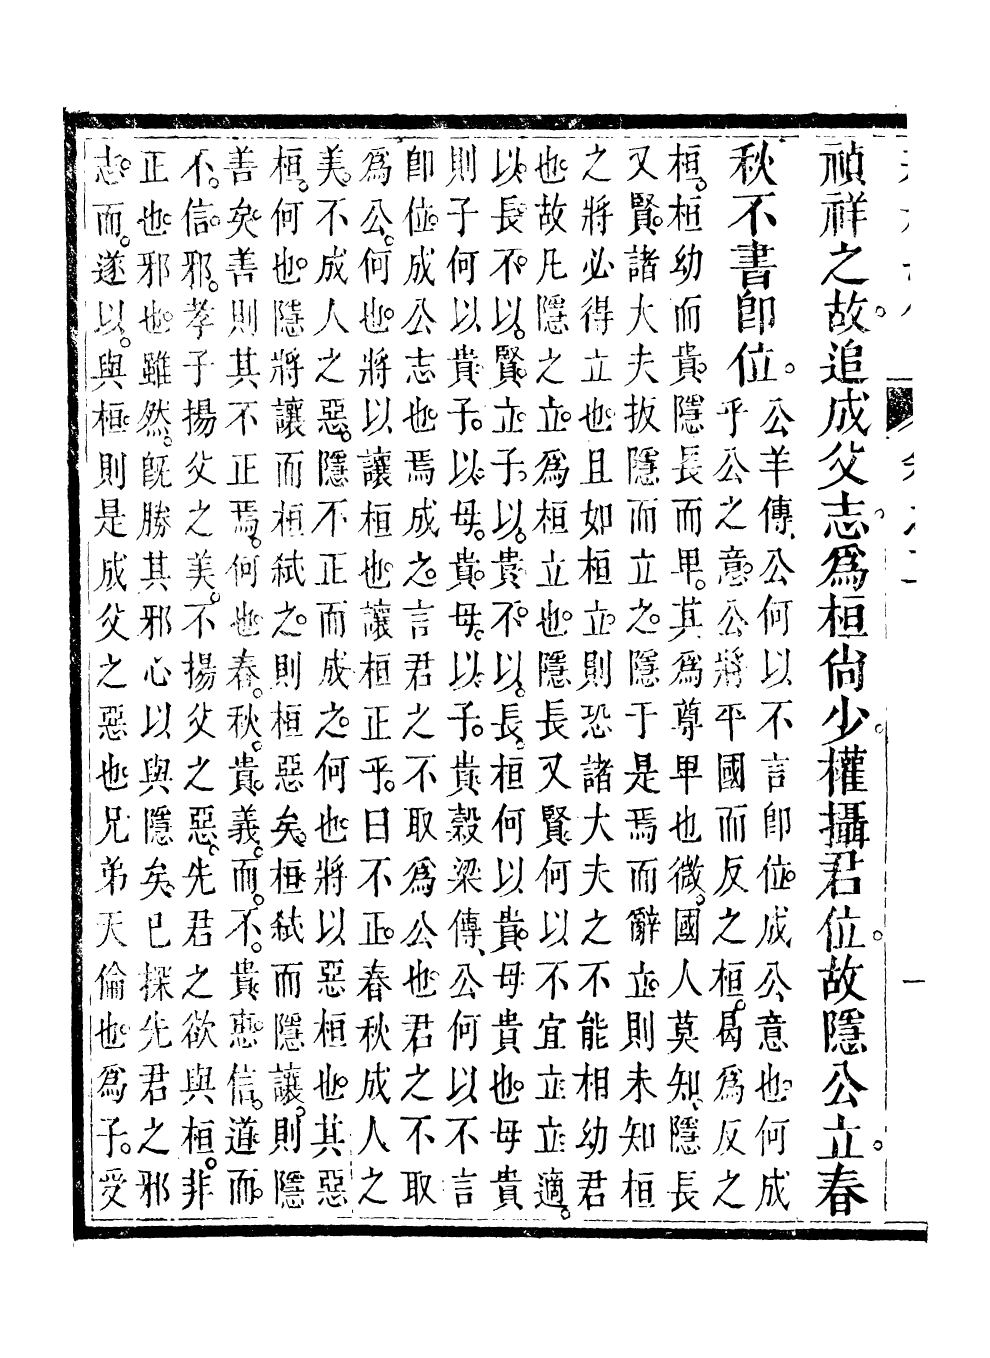 禎祥之故。追成父志。爲桓尚少。權攝君位。故隱公立。春
秋不書卽位。公羊傳、公何以不言卽位。成公意也。何成
乎公之意。公將平國而反之桓。曷爲反之
桓。桓幼而貴。隱長而卑。其爲尊卑也微。國人莫知、隱長
又賢。諸大夫扳隱而立之。隱于是焉而辭立。則未知桓
之將必得立也。且如桓立。則恐諸大夫之不能相幼君
也。故凡隱之立。爲桓立也。隱長又賢。何以不宜立。立適。
以長。不以賢。立子。以貴。不以長。桓何以貴。母貴也。母貴
則子何以貴。子以母貴。母以子貴。穀梁傳、公何以不言
卽位。成公志也。焉成之。言君之不取爲公也。君之不取
爲公。何也。將以讓桓也。讓桓正乎。曰不正。春秋成人之
美。不成人之惡。隱不正而成之。何也。將以惡桓也。其惡
桓。何也。隱將讓而桓弒之。則桓惡矣。桓弒而隱讓。則隱
善矣。善則其不正焉。何也。春秋。貴義。而不。貴惠。信道而
不信。邪。孝子揚父之美。不揚父之惡。先君之欲與桓。非
正也。邪也。雖然。旣勝其邪心以與隱矣。已探先君之邪
志。而遂以與桓。則是成父之惡也。兄弟天倫也。爲子。受